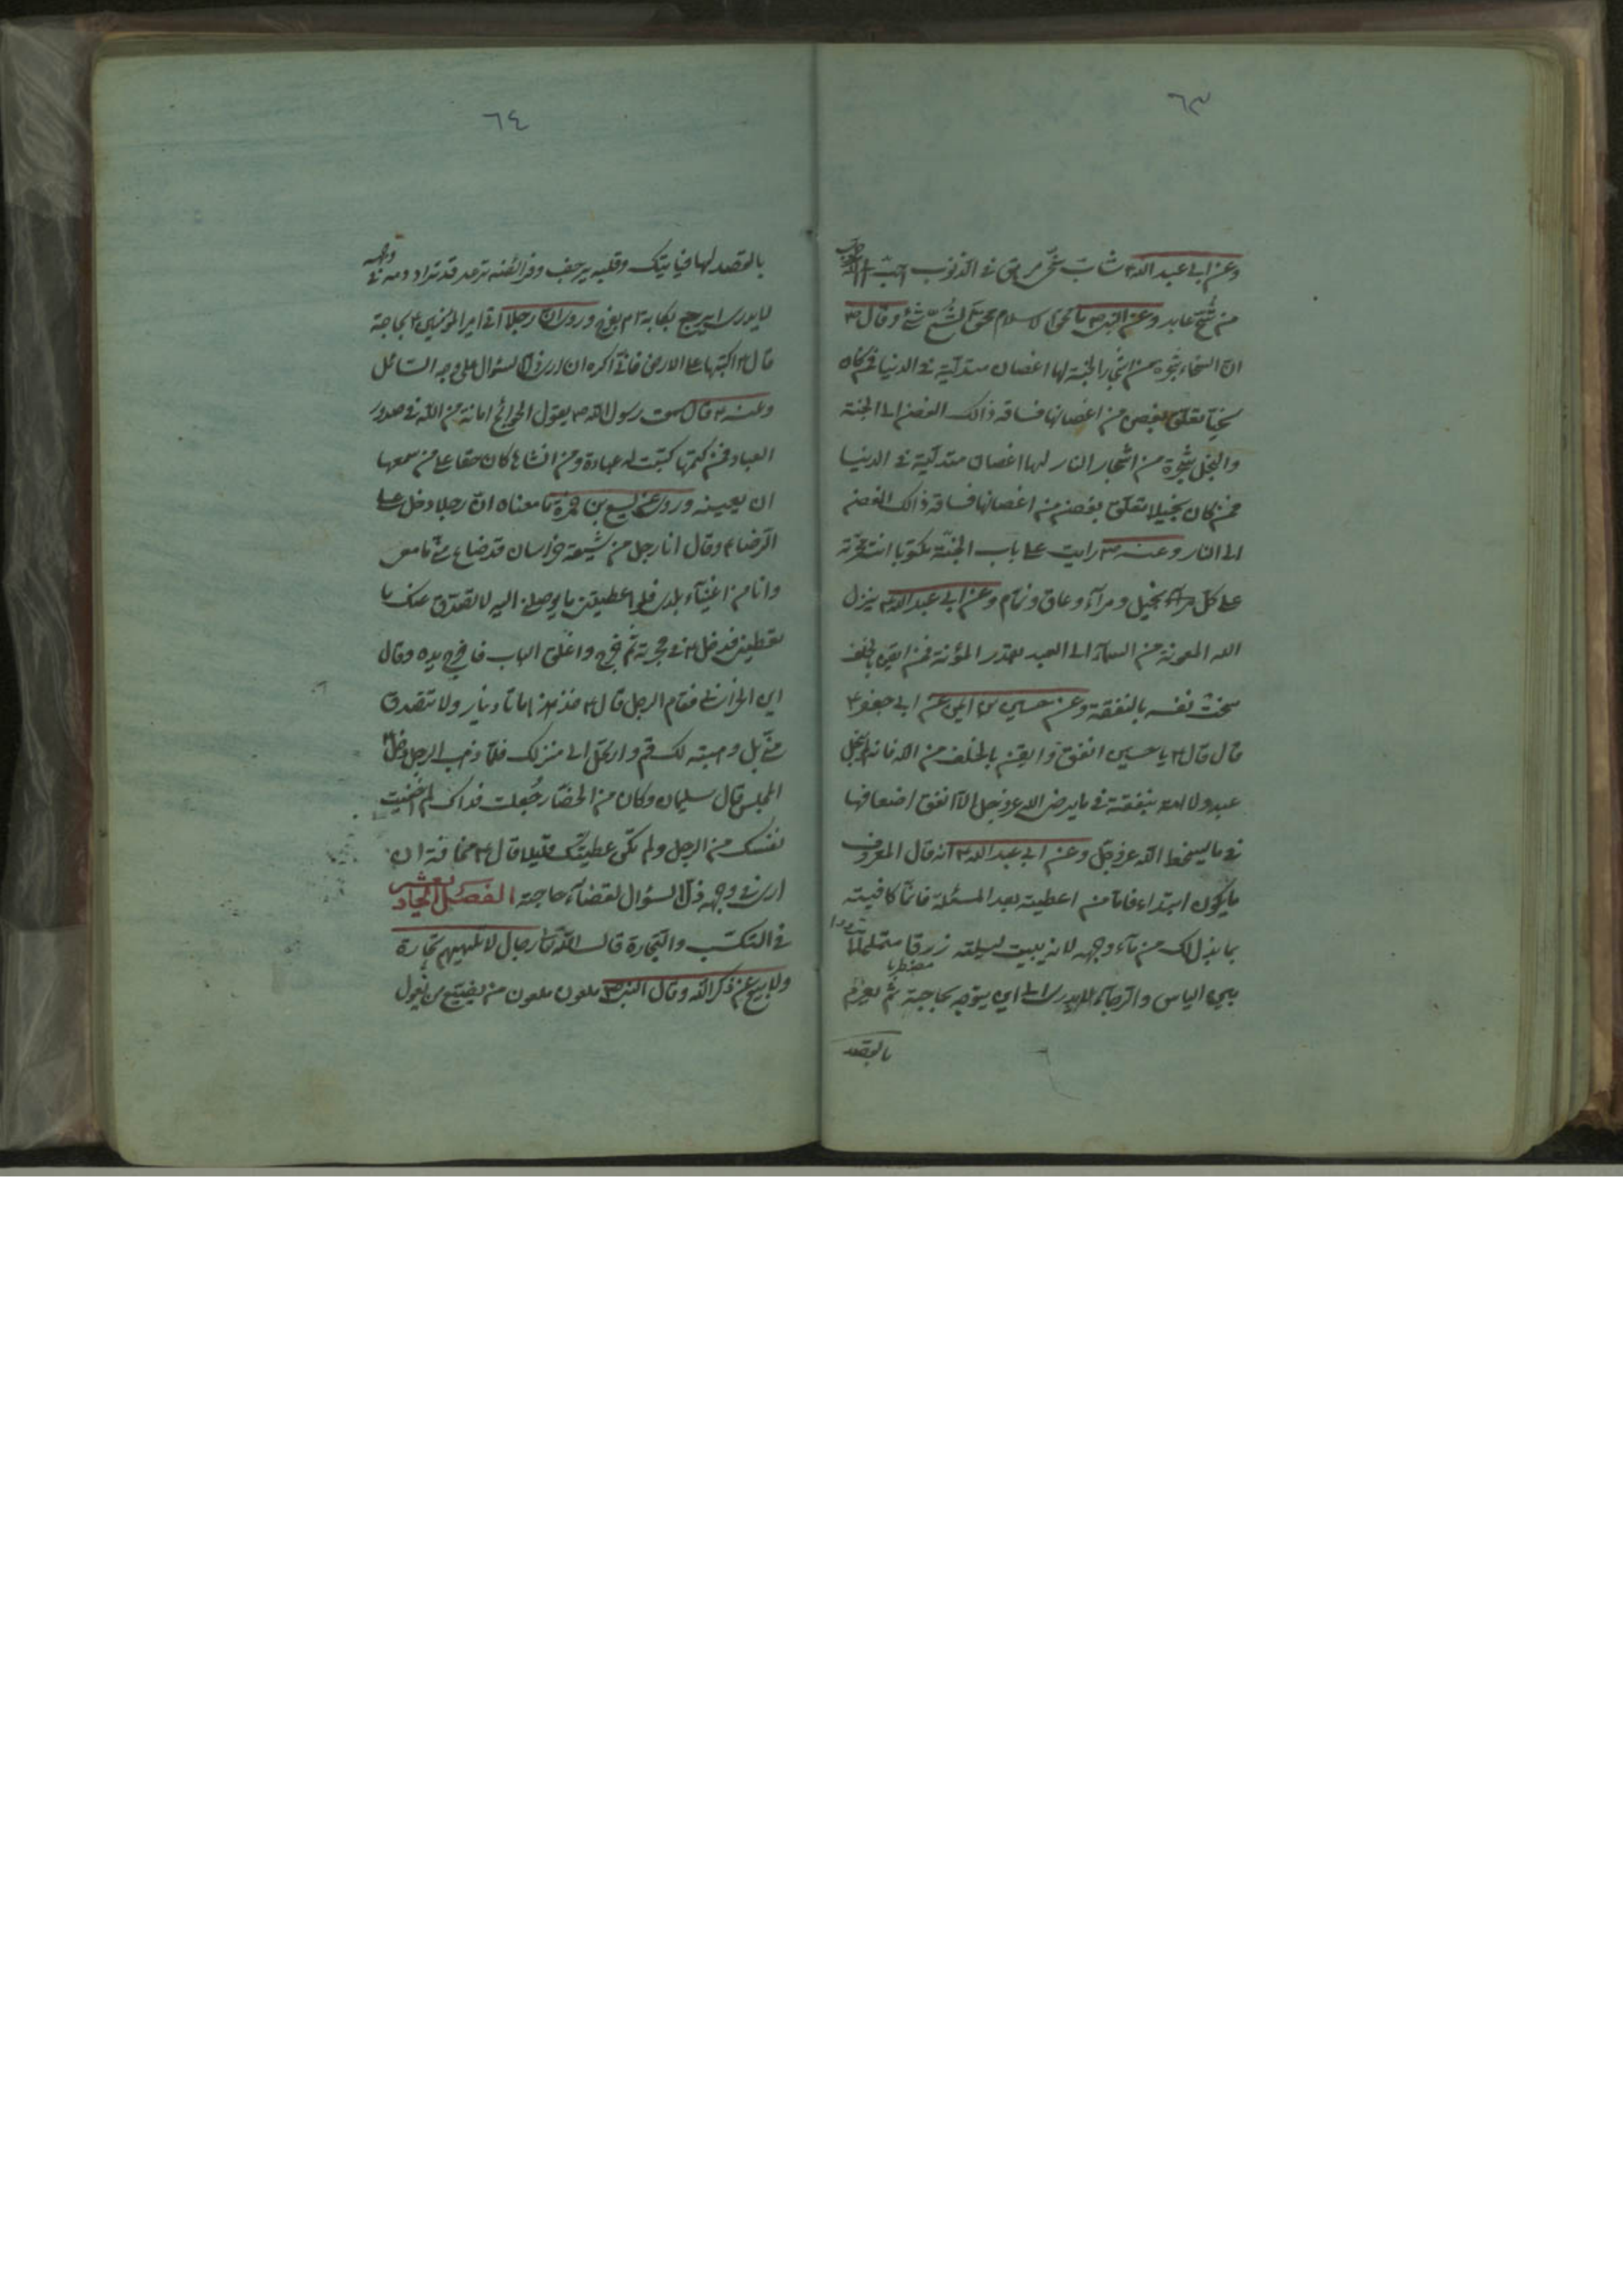 ٦٣
وعن ابي عبد الله ع شاب سخي مرهق في الذنوب احب الى الله
من شيخ عابد وعن النبي ص ما محق الاسلام محق الشح شئ وقال ص
ان السخاء شجرة من اشجار الجنة لها اغصان متدلية في الدنيا فمن كان
سخيا تعلق بغصن من اغصانها فساقه ذالك الغصن الى الجنة
والبخل شجرة من اشجار النار لها اغصان متدلية في الدنيا
فمن كان بخيلا تعلق بغصن من اغصانها فساقه ذالك الغصن
الى النار وعنه ص رايت على باب الجنة مكتوبا انت محرمة
على كل بخيل ومرآء وعاق ونمام وعن ابي عبد الله ع ينزل
الله المعونة من السمآء الى العبد بقدر المؤنة فمن ايقن بالخلف
سخت نفسه بالنفقة وعن حسين بن ايمن عن ابي جعفر ع
قال قال ع يا حسين انفق وايقن بالخلف من الله فانه لم يبخل
عبد ولا امة بنفقة في ما يرضى الله عز وجل الا انفق اضعافها
في ما يسخط الله عز وجل وعن ابي عبد الله ع انه قال المعروف
ما يكون ابتداء فاما من اعطيته بعد المسئلة فانما كافيته
بما بذل لك من مآء وجهه لانه يبيت ليلته متململا
مضطربا
بين الياس والرجاء لا يدرى الى اين يتوجه بحاجته ثم يعزم
بالقصد
٦٤
بالقصد لها فياتيك وقلبه يرجف وفرائصه ترعد قد ترى دمه في
وجهه
لا يدرى ايرجع بكابة ام بفرح وروى ان رجلا اتى امير المؤمنين ع بحاجة
قال ع اكتبها على الارض فانى اكره ان ارى ذل السئوال على وجه السائل
وعنه ع قال سمعت رسول الله ص يقول الحوائج امانة من الله في صدور
العباد فمن كتمها كتبت له عبادة ومن افشاها كان حقا على من سمعها
ان يعينه وروى عن اليسع بن حمزة ما معناه ان رجلا دخل على
الرضا ع وقال انا رجل من شيعة خراسان قد ضاع منى ما معى
وانا من اغنيآء بلدى فلو اعطيتنى ما يوصلنى اليه لاتصدق عنك ما
تعطينى فدخل ع في حجرته ثم خرج واغلق الباب فاخرج يده وقال
اين الخراسانى فقام الرجل قال ع خذ هذا مأتا دينار ولا تتصدق
منى بل وهبته لك قم وارتحل الى منزلك فلما ذهب الرجل ودخل
المجلس قال سليمان وكان من الحضار جعلت فداك لم اخفيت
نفسك من الرجل ولم تكن عطيتك قليلا قال ع مخافة ان
ارى في وجهه ذل السئوال لقضاء حاجته الفصل الحادى عشر
في التكسب والتجارة قال الله تعالى رجال لا تلهيهم تجارة
ولا بيع عن ذكر الله وقال النبى ص ملعون ملعون من يضيع من يعول